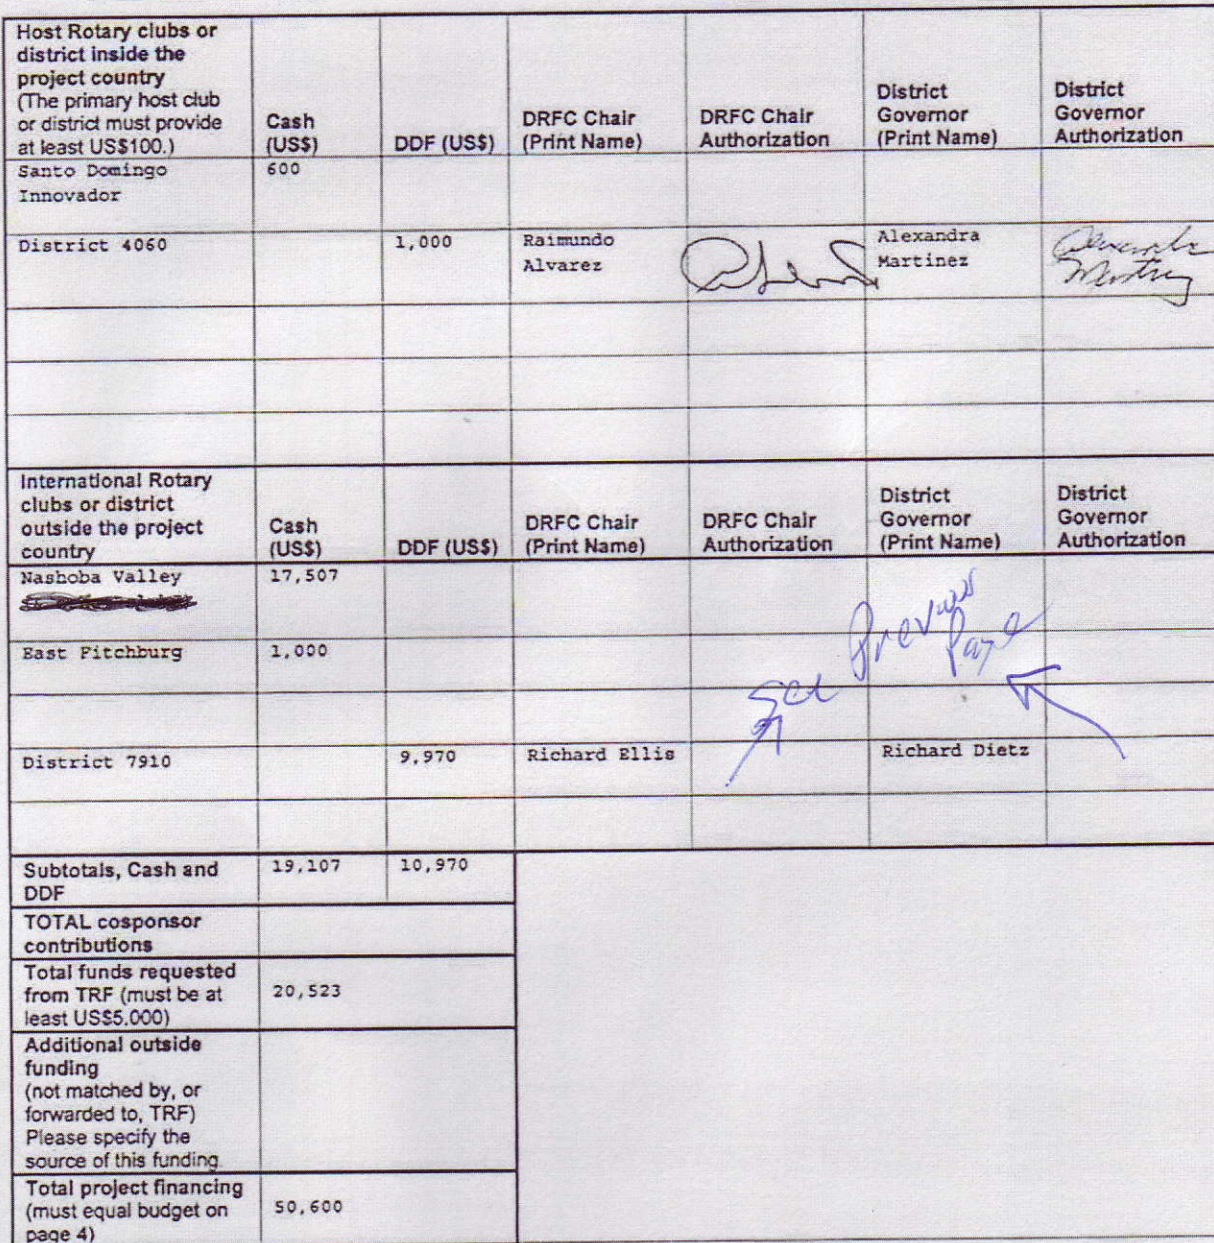 Host Rotary clubs or
district inside the
project country
(The primary host club
or district must provide
at least US$100.)
Cash
(US$)
DDF (US$)
DRFC Chair
(Print Name)
DRFC Chair
Authorization
District
Governor
(Print Name)
District
Governor
Authorization
Santo Domingo
Innovador
600
District 4060
1,000
Raimundo
Alvarez
Alexandra
Martinez
Alexandra
Martinez
International Rotary
clubs or district
outside the project
country
Cash
(US$)
DDF (US$)
DRFC Chair
(Print Name)
DRFC Chair
Authorization
District
Governor
(Print Name)
District
Governor
Authorization
Nashoba Valley
17,507
East Fitchburg
1,000
See Previous
Page
District 7910
9,970
Richard Ellis
Richard Dietz
Subtotals, Cash and
DDF
19,107
10,970
TOTAL cosponsor
contributions
Total funds requested
from TRF (must be at
least US$5.000)
20,523
Additional outside
funding
(not matched by, or
forwarded to, TRF)
Please specify the
source of this funding.
Total project financing
(must equal budget on
page 4)
50,600